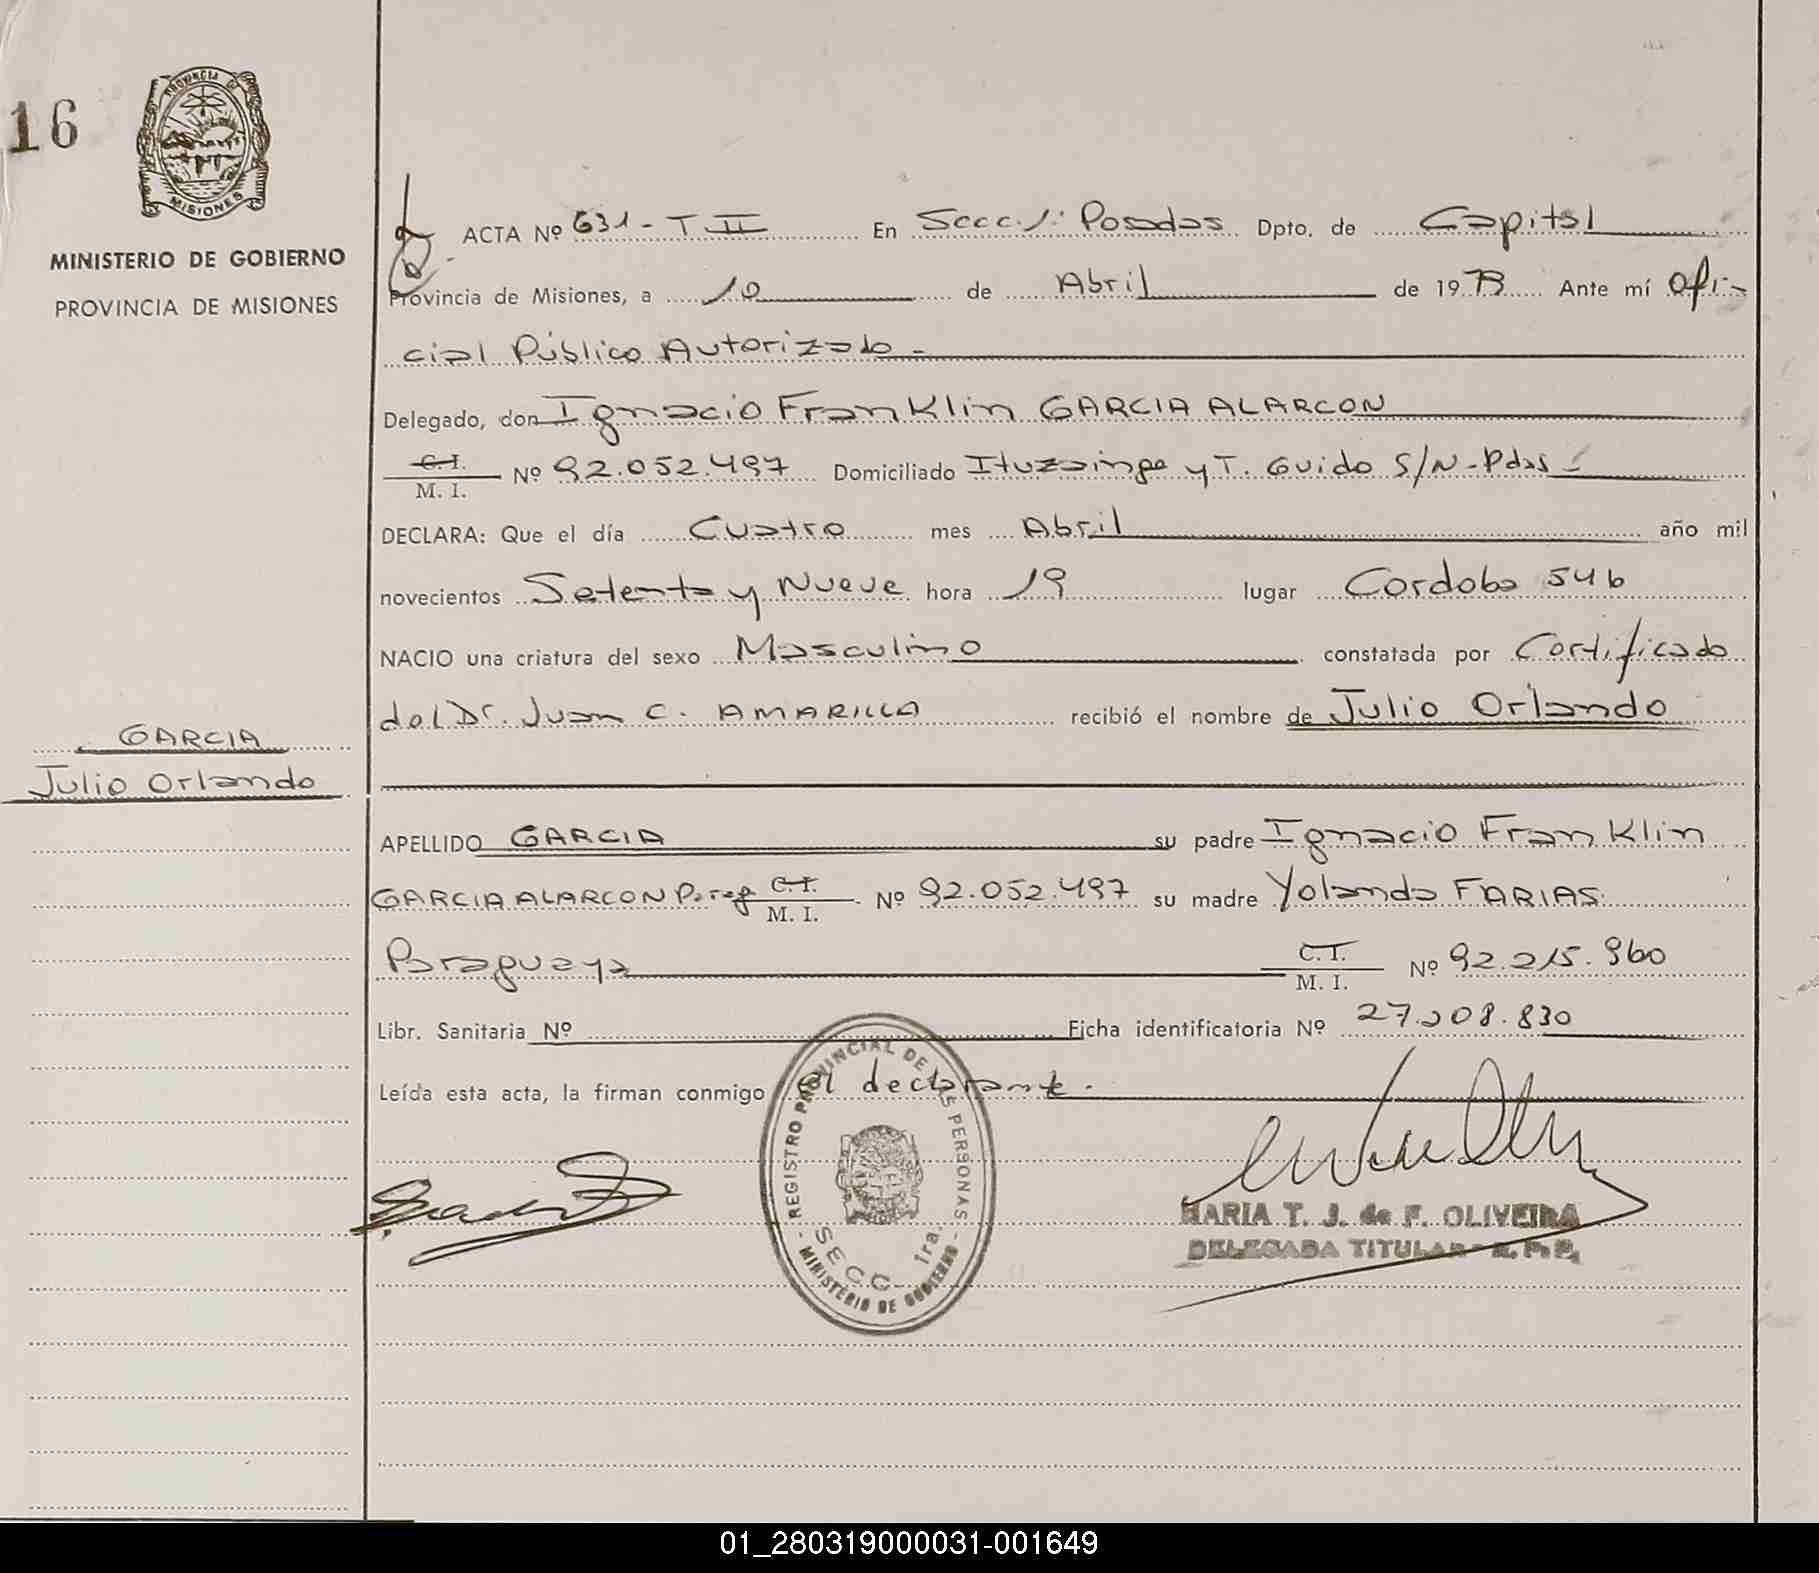 16
PROVINCIA DE
MISIONES
MINISTERIO DE GOBIERNO
PROVINCIA DE MISIONES
ACTA Nº 631 - T II En Secc. 1: Posadas Dpto. de Capital
Provincia de Misiones, a 10 de Abril de 1979 Ante mí Ofi-
cial Público Autorizado -
Delegado, don Ignacio Franklin GARCIA ALARCON
C.I.
M. I. Nº 92.052.497 Domiciliado Ituzaingo y T. Guido S/N - Pdas -
DECLARA: Que el día Cuatro mes Abril año mil
novecientos Setenta y Nueve hora 19 lugar Cordoba 546
NACIO una criatura del sexo Masculino constatada por Certificado
del Dr. Juan C. AMARILLA recibió el nombre de Julio Orlando
GARCIA
Julio Orlando
APELLIDO GARCIA su padre Ignacio Franklin
GARCIA ALARCON Parag C.I.
M. I. Nº 92.052.497 su madre Yolanda FARIAS
Paraguaya C.I.
M. I. Nº 92.215.960
Libr. Sanitaria Nº Ficha identificatoria Nº 27.208.830
Leída esta acta, la firman conmigo el declarante.
REGISTRO PROVINCIAL DE LAS PERSONAS
SECC. 1ra.
- MINISTERIO DE GOBIERNO -
MARIA T. J. de F. OLIVEIRA
DELEGADA TITULAR R. P. P.
01_280319000031-001649